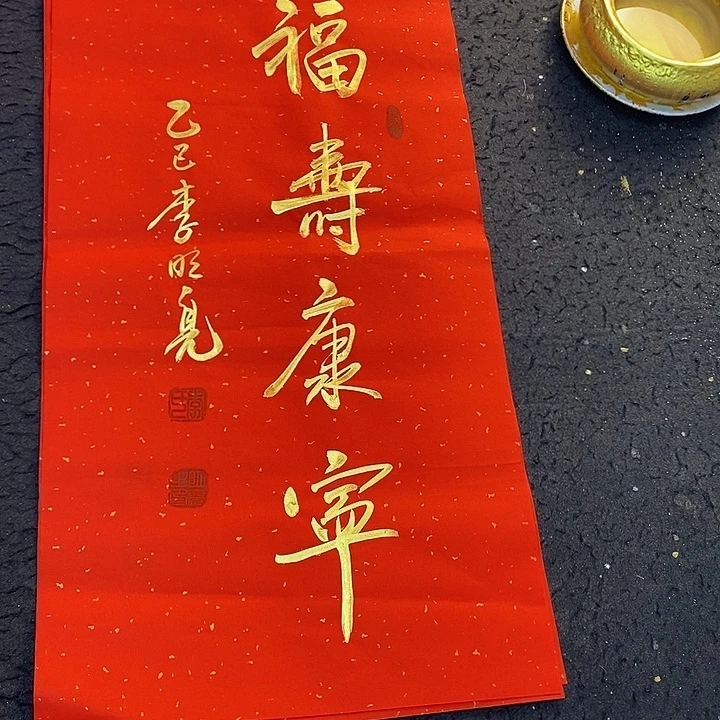 福壽康寧
乙巳李明亮